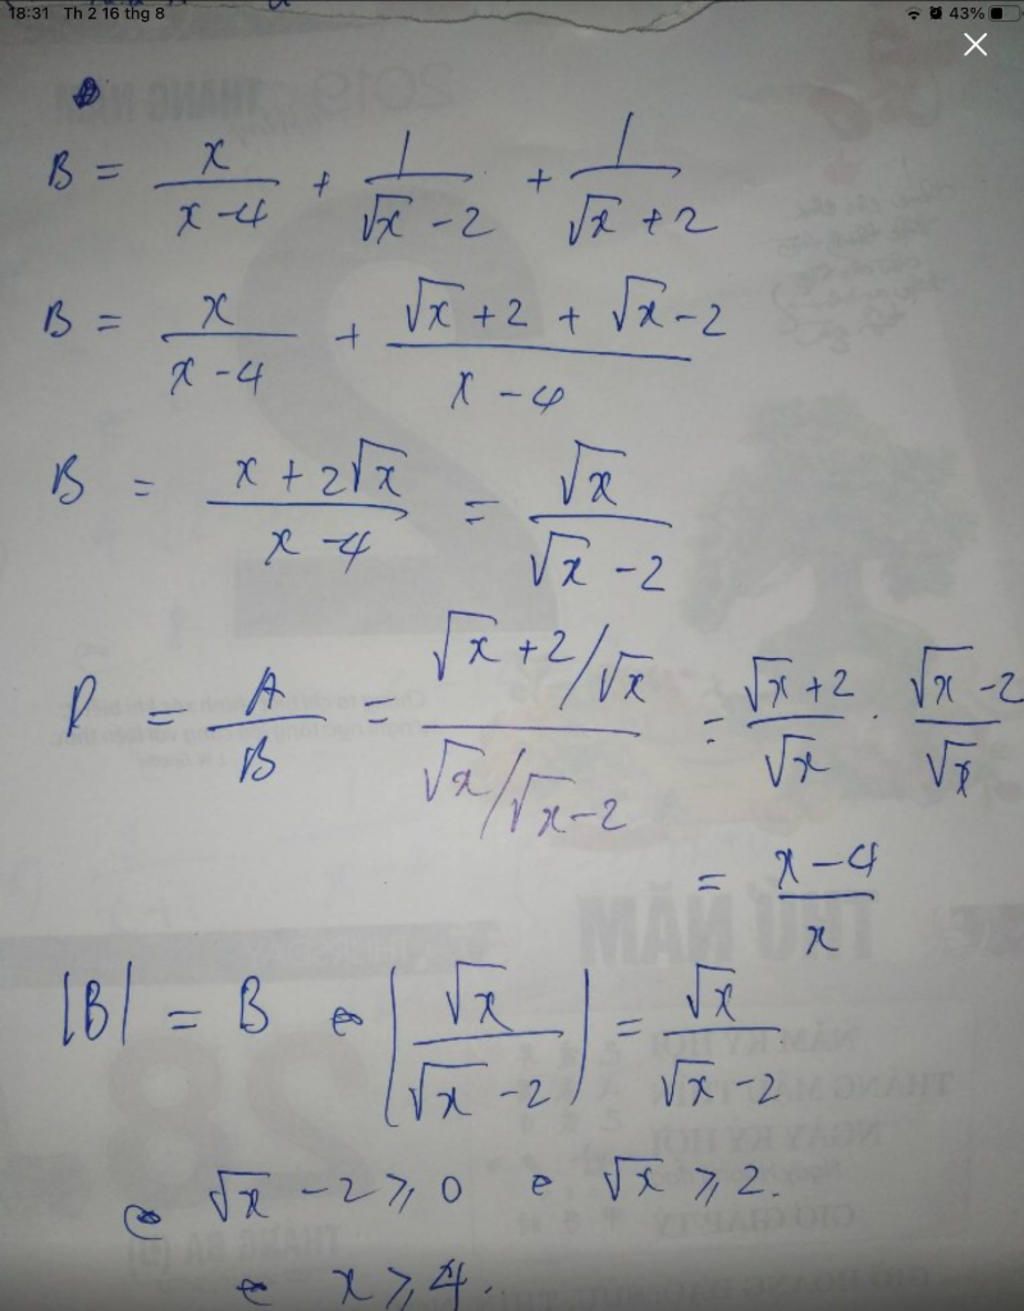 18:31 Th 2 16 thg 8 43%
B = x/(x-4) + 1/(√x - 2) + 1/(√x + 2)
B = x/(x-4) + (√x + 2 + √x - 2)/(x - 4)
B = (x + 2√x)/(x - 4) = √x/(√x - 2)
P = A/B = (√x + 2/√x)/(√x/√x - 2) = (√x + 2)/√x . (√x - 2)/√x
= (x - 4)/x
|B| = B ⇔ |√x/(√x - 2)| = √x/(√x - 2)
⇔ √x - 2 ⩾ 0 ⇔ √x ⩾ 2.
⇔ x ⩾ 4.